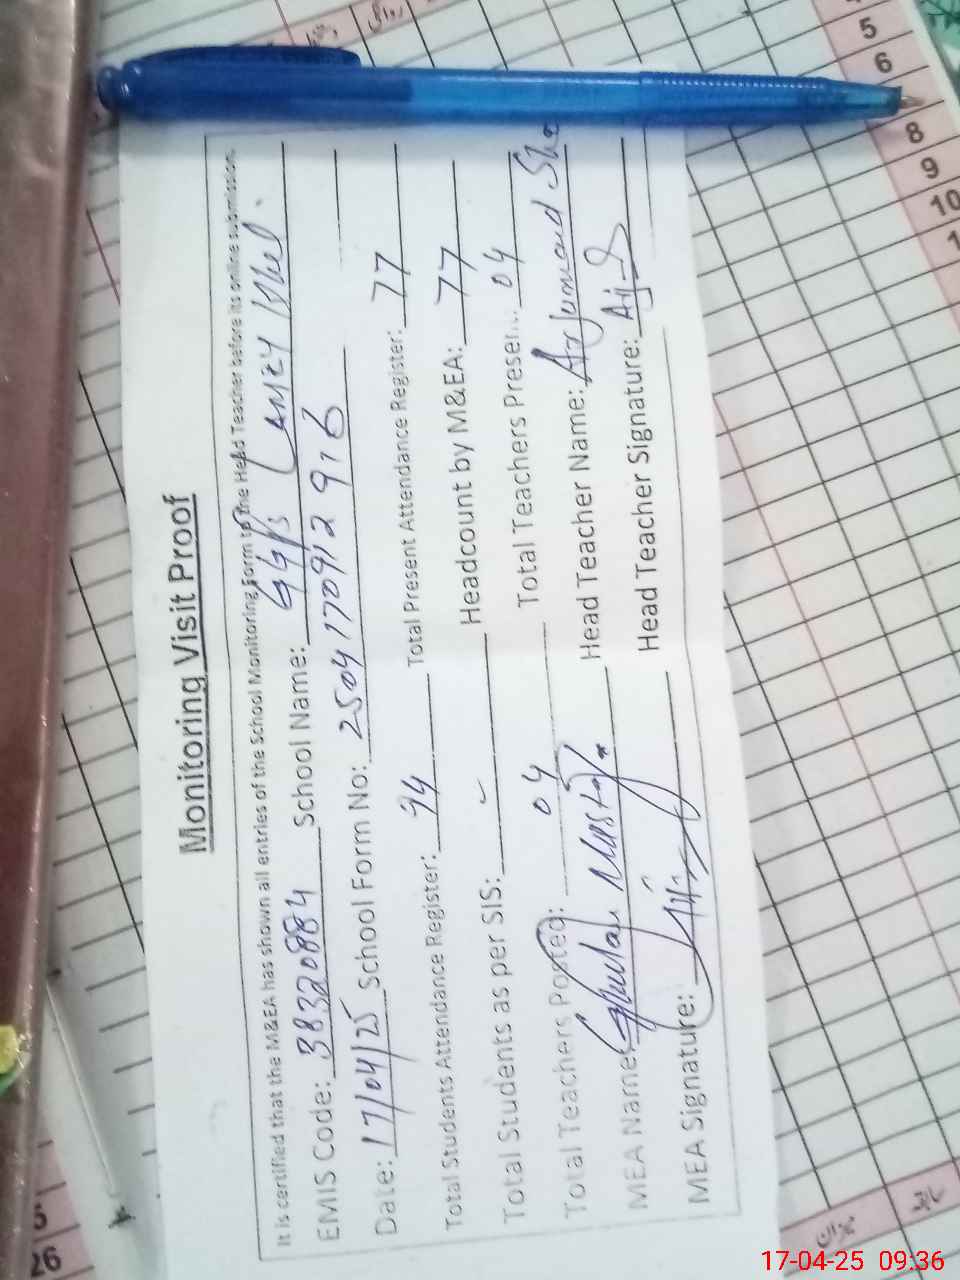 Monitoring Visit Proof
It is certified that the M&EA has shown all entries of the School Monitoring Form to the Head Teacher before its online submission.
EMIS Code: 38320884 School Name: GGPS
Date: 17/04/25 School Form No: 2504170912916
Total Students Attendance Register: 94 Total Present Attendance Register: 77
Total Students as per SIS: Headcount by M&EA: 77
Total Teachers Posted: 04 Total Teachers Presen 04
MEA Name: Ghulam Mustafa Head Teacher Name: Arjumand Sha
MEA Signature: Head Teacher Signature:
5
6
8
9
10
1
26
میزان
سابقہ
17-04-25 09:36